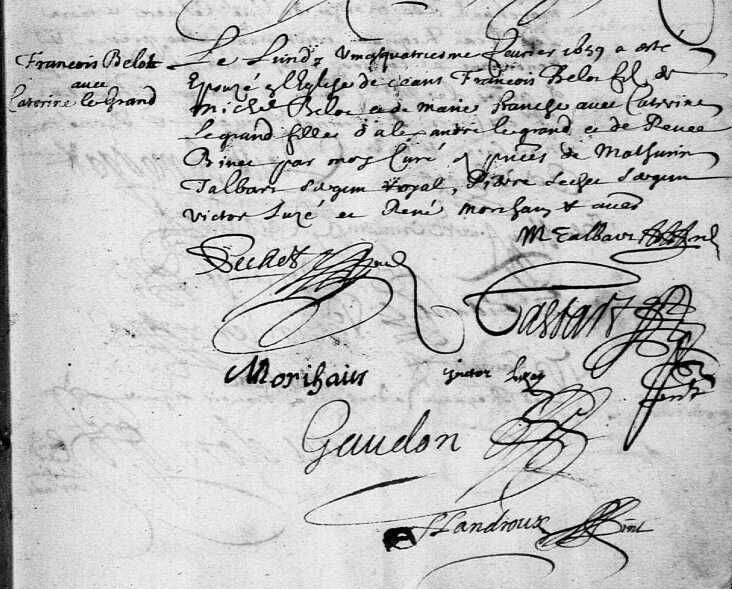 Francois Belot
avec
Caterine le Grand
Le Lundy vingquatriesme fevrier 1659 a esté
Epouzé en l'Eglise de ceans Francois Belot fil de
Michel Belot et de marie franche avec Caterine
Legrand fille d'alexandre legrand et de Renee
Binet par moy Curé en pñces de Mathurin
Talbart royal, Pierre Sechet
victor Luzé et René morihain et
M Talbart
Sechet
Tassart
Morihain victor luzé
Gaudon
Landroux